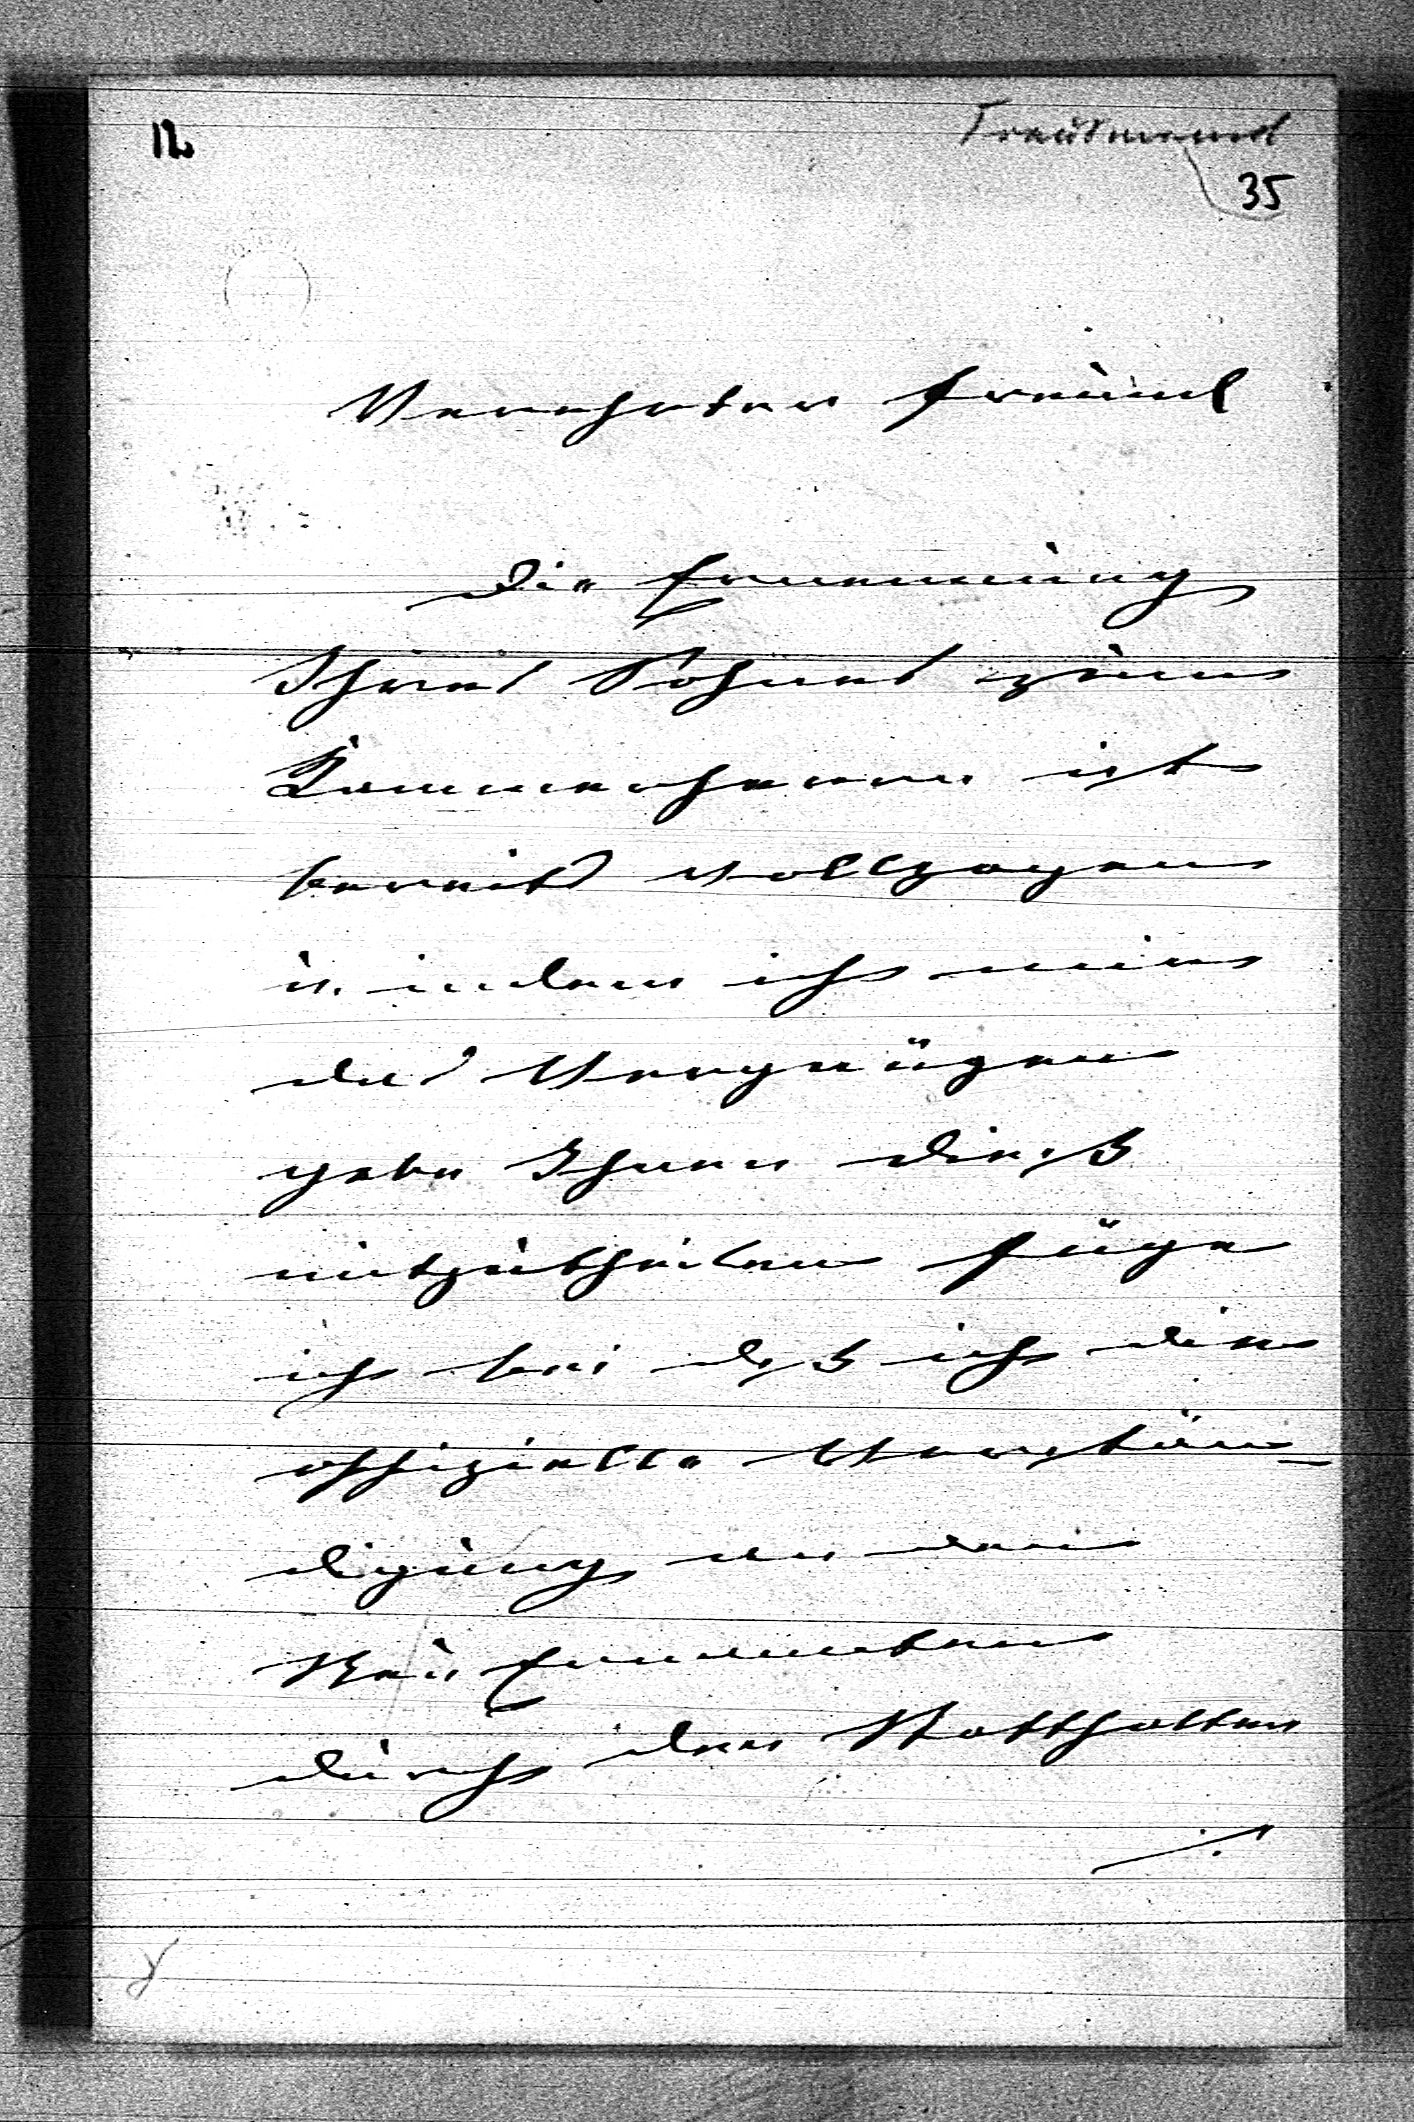 12.
Trautmannsd
35
Verehrter Freund
Die Ernennung
Ihres Sohnes zum
Kammerherrn ist
bereits vollzogen
u. indem ich mir
das Vergnügen
gebe Ihnen dieß
mitzutheilen füge
ich bei daß ich die
offizielle Verstän-
digung an den
Neu Ernannten
durch den Statthalter
./.